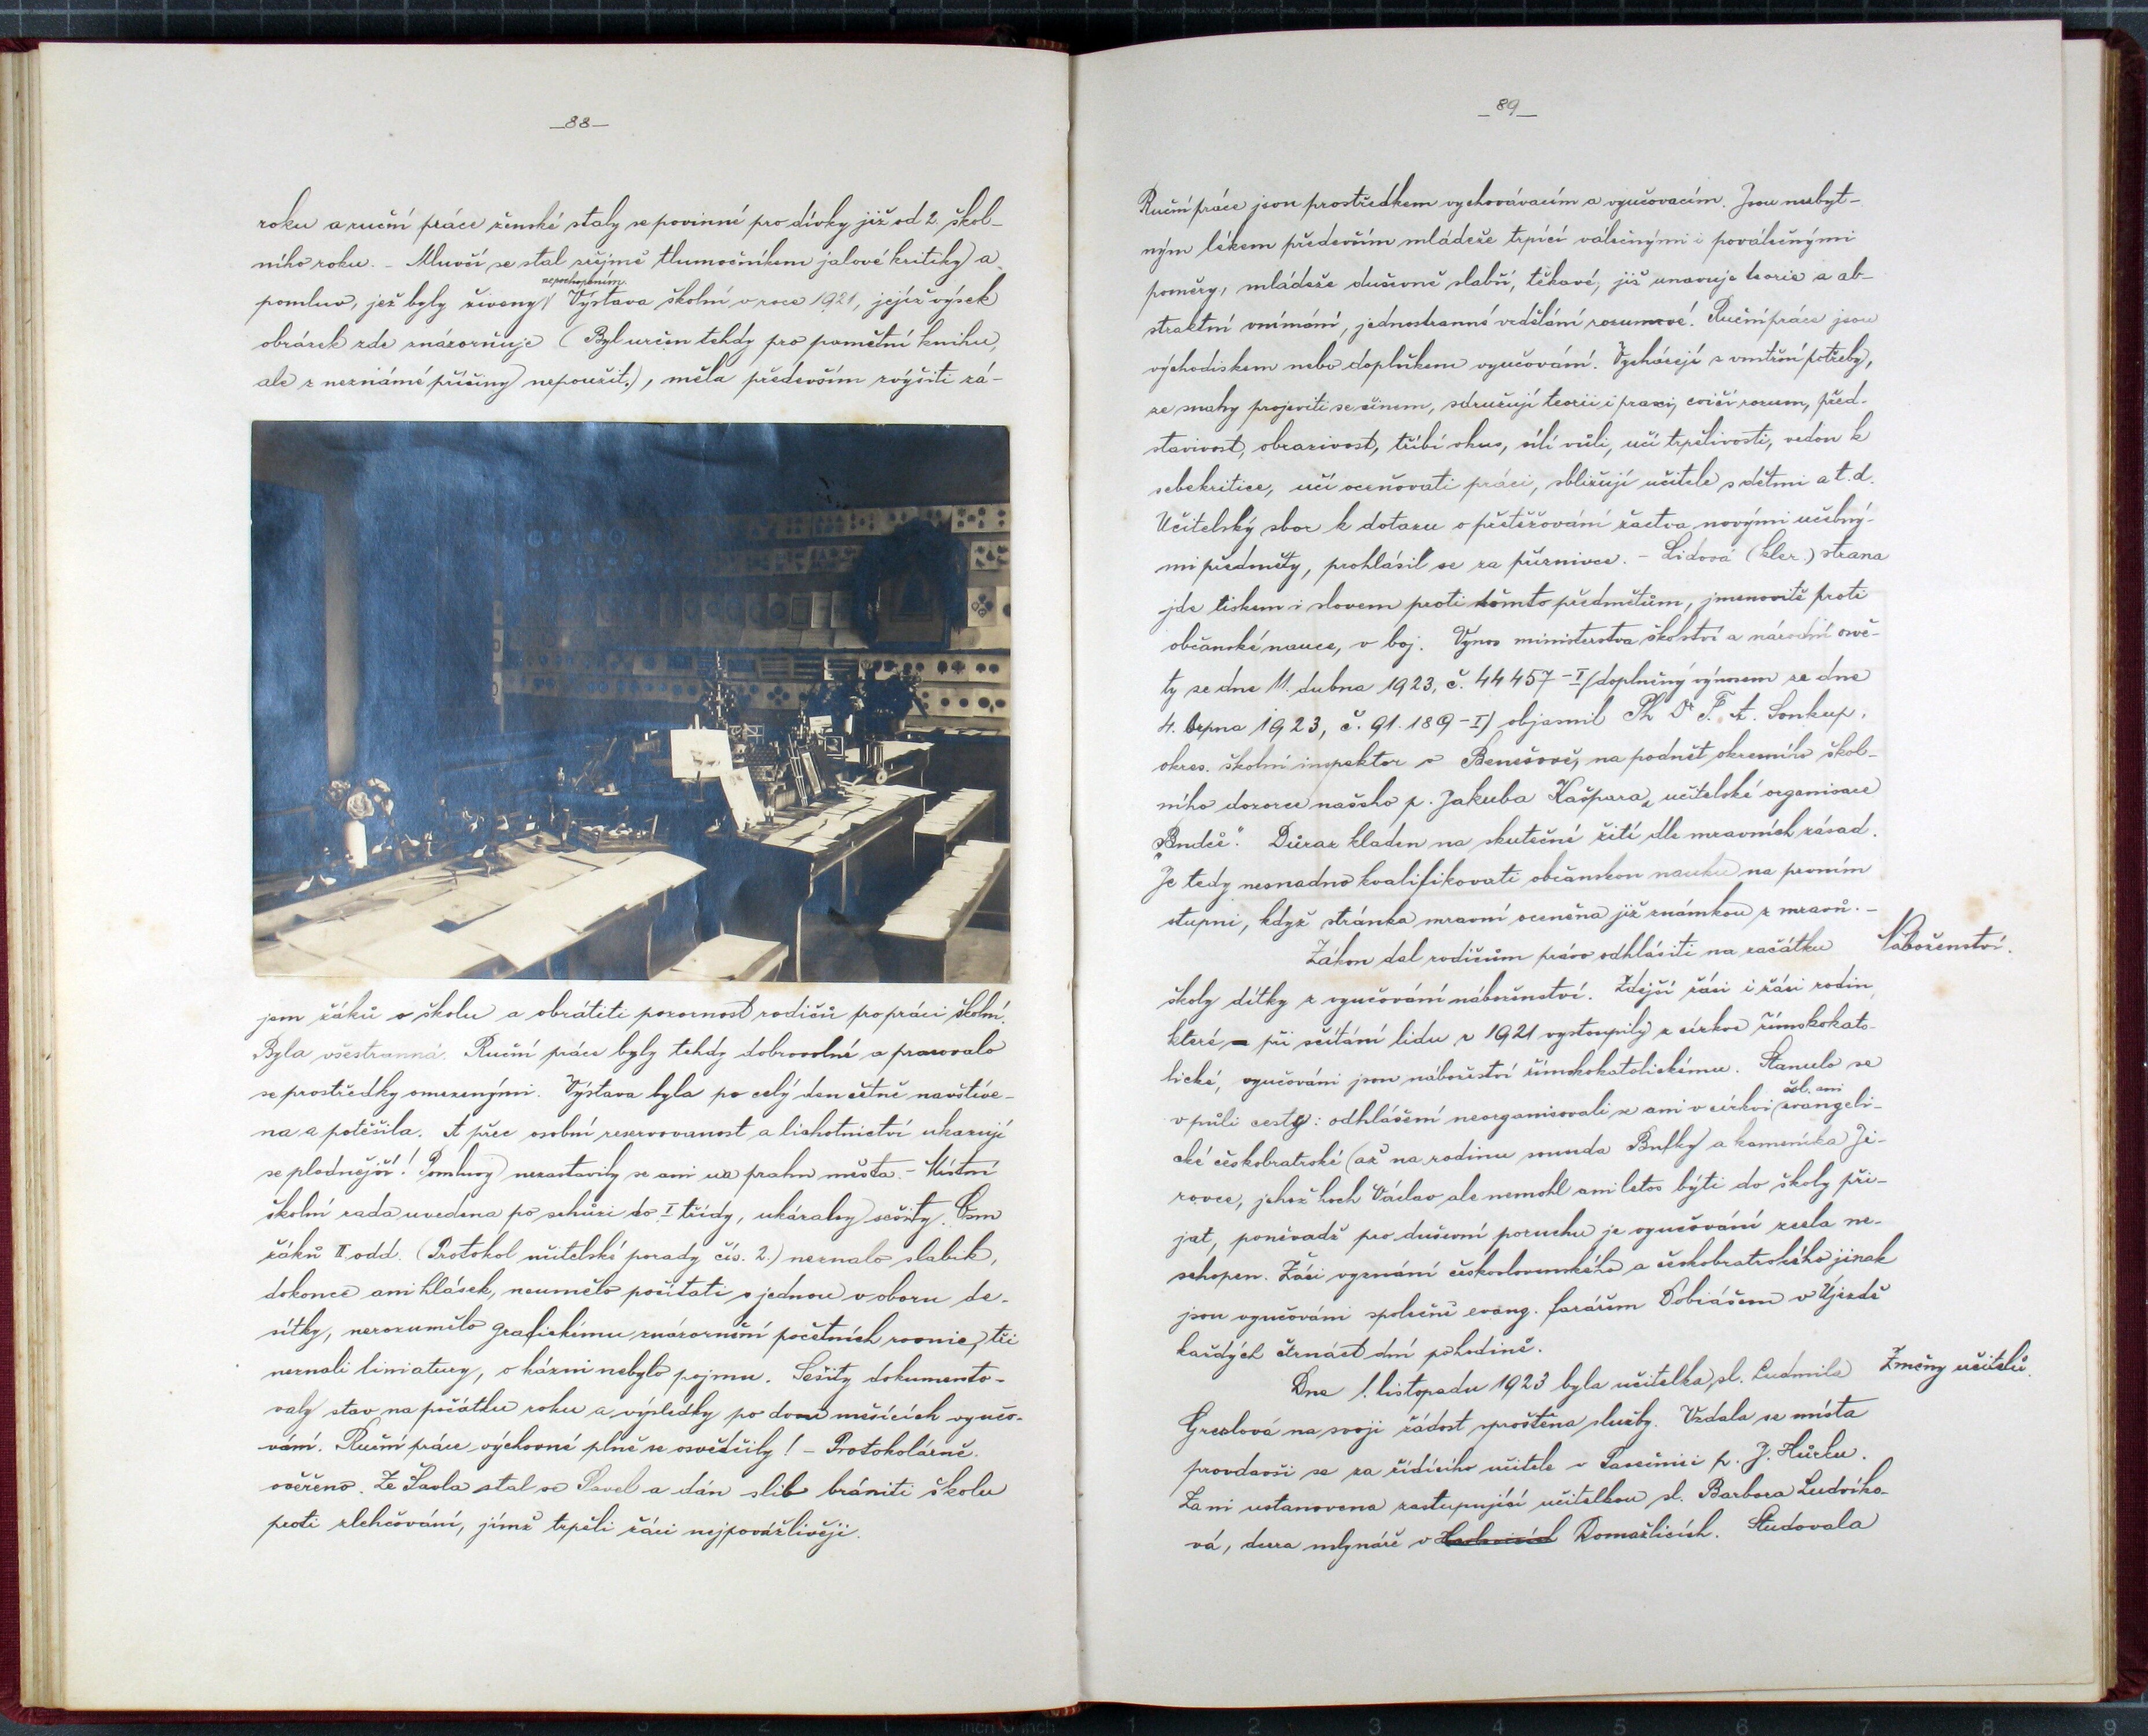 –88–
roku a ruční práce ženské staly se povinné pro dívky již od 2 škol-
ního roku. – Mluvčí se stal zřejmě tlumočníkem jalové kritiky a
nepochopením.
pomluv, jež byly živeny Výstava školní v roce 1921, jejíž výsek
obrázek zde znázorňuje (Byl určen tehdy pro pamětní knihu,
ale z neznámé příčiny nepoužit.), měla především zvýšiti zá-
jem žáků o školu a obrátiti pozornost rodičů pro práci školní.
Byla všestranná. Ruční práce byly tehdy dobrovolné a pracovalo
se prostředky omezenými. Výstava byla po celý den četně navštíve-
na a potěšila. A přec osobní reservovanost a lichotnictví ukazují
se plodnější! Pomluvy nezastavily se ani na prahu města. – Místní
školní rada uvedena po schůzi do I třídy, ukázaly sešity. Osm
žáků II. odd. (Protokol učitelské porady čís. 2.) neznalo slabik,
dokonce ani hlásek, neumělo počítati s jednou v oboru de-
sítky, nerozumělo grafickému znázornění početních rovnic, tři
neznali liniatury, o kázni nebylo pojmu. Sešity dokumento-
valy stav na počátku roku a výsledky po dvou měsících vyučo-
vání. Ruční práce výchovné plně se osvědčily! – Protokolárně
ověřeno. Ze Šavla stal se Pavel a dán slib brániti školu
proti zlehčování, jímž trpěli žáci nejpovážlivěji.
–89–
Ruční práce jsou prostředkem vychovávacím a vyučovacím. Jsou nezbyt-
ným lékem především mládeže trpící válečnými i poválečnými
poměry, mládeže duševně slabší, těkavé, již unavuje teorie a ab-
straktní vnímání, jednostranné vzdělání rozumové. Ruční práce jsou
východiskem nebo doplňkem vyučování. Vycházejí z vnitřní potřeby,
ze snahy projeviti se činem, sdružují teorii i praxi, cvičí rozum, před-
stavivost, obrazivost, tříbí vkus, sílí vůli, učí trpělivosti, vedou k
sebekritice, učí oceňovati práci, sbližují učitele s dětmi a t. d.
Učitelský sbor k dotazu o přetěžování žactva novými učebný-
mi předměty, prohlásil se za příznivce. – Lidová (kler.) strana
jde tiskem i slovem proti těmto předmětům, jmenovitě proti
občanské nauce, v boj. Výnos ministerstva školství a národní osvě-
ty ze dne 11. dubna 1923, č. 44457–I/doplněný výnosem ze dne
4. srpna 1923, č. 91.189–I/ objasnil Ph Dr F. A. Soukup,
okres. školní inspektor v Benešově, na podnět okresního škol-
ního dozorce našeho p. Jakuba Kašpara, učitelské organisace
„Budeč“. Důraz kladen na skutečné žití dle mravních zásad.
Je tedy nesnadno kvalifikovati občanskou nauku na prvním
stupni, když stránka mravní oceněna již známkou z mravů. –
Zákon dal rodičům právo odhlásiti na začátku
Náboženství.
školy dítky z vyučování náboženství. Zdejší žáci i žáci rodin,
které při sčítání lidu r 1921 vystoupily z církve římskokato-
lické, vyučováni jsou náboženství římskokatolickému. Stanulo se
čsl. ani
v půli cesty: odhlášení neorganisovali se ani v církvi evangeli-
cké českobratrské (až na rodinu souseda Bulky a kameníka Ji-
rovce, jehož hoch Václav ale nemohl ani letos býti do školy při-
jat, poněvadž pro duševní poruchu je vyučování zcela ne-
schopen. Žáci vyznání československého a českobratrského jinak
jsou vyučováni společně evang. farářem Tobiášem v Újezdě
každých čtrnáct dní po hodině.
Dne 1. listopadu 1923 byla učitelka sl. Ludmila
Změny učitelů.
Greslová na svoji žádost sproštěna služby. Vzdala se místa
provdavši se za řídícího učitele v p. J. Hůrku.
Za ni ustanovena zastupující učitelkou sl. Barbora Ludvíko-
vá, dcera mlynáře v Domažlicích. Studovala